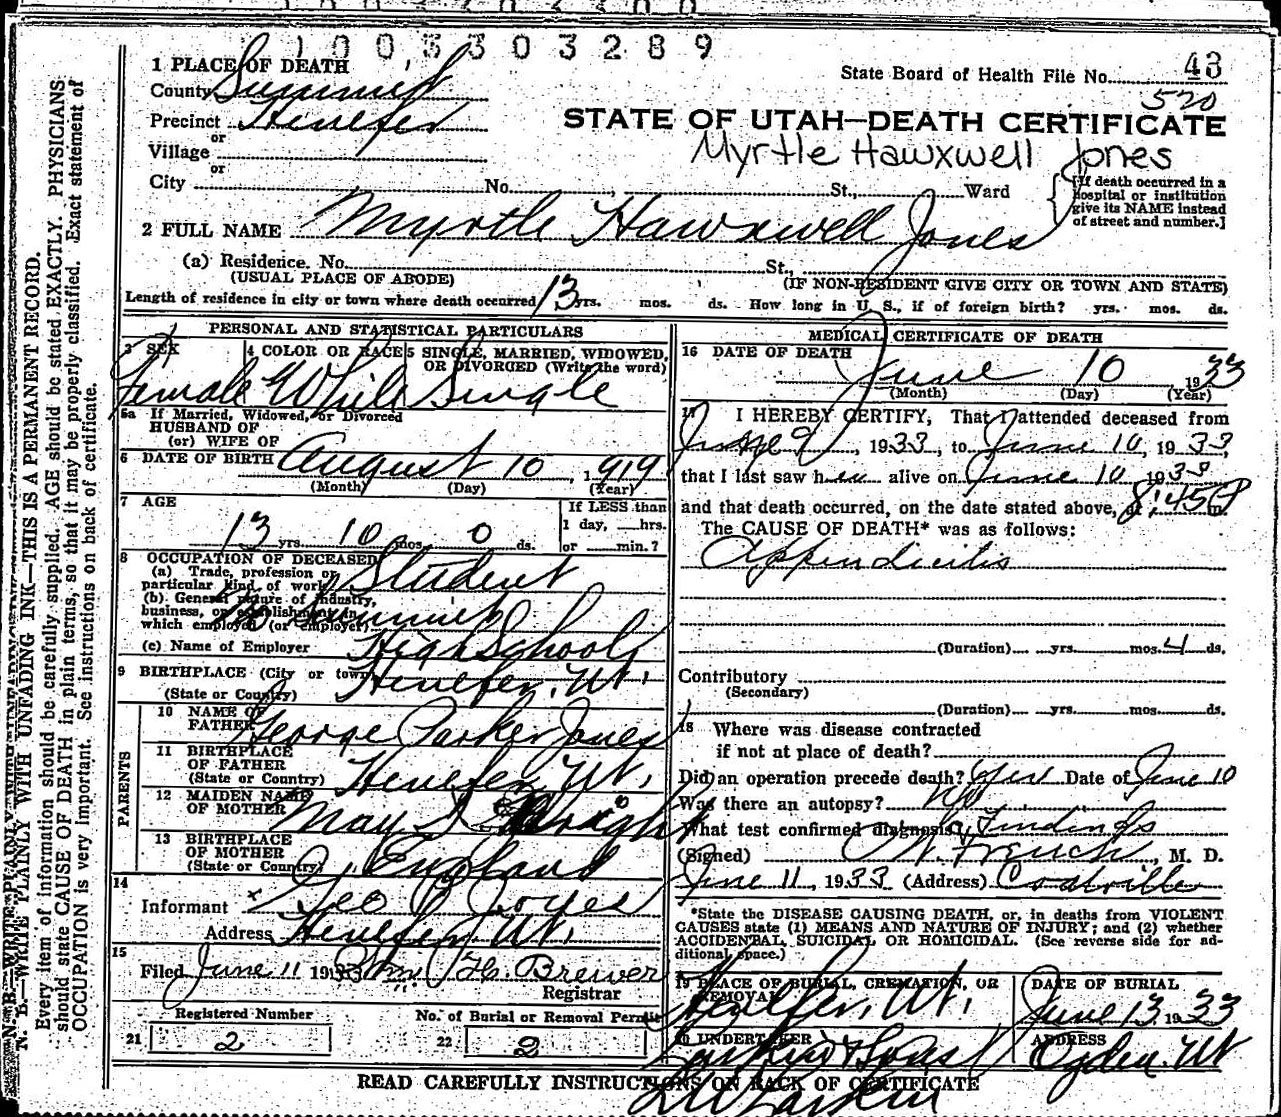 1003303289
1 PLACE OF DEATH
State Board of Health File No. 43
County Summit
520
Precinct Henefer
STATE OF UTAH—DEATH CERTIFICATE
or
Myrtle Hawxwell Jones
Village
or
City No. St., Ward
[If death occurred in a
hospital or institution
give its NAME instead
of street and number.]
2 FULL NAME Myrtle Hawxwell Jones
(a) Residence. No. St.,
(USUAL PLACE OF ABODE) (IF NON-RESIDENT GIVE CITY OR TOWN AND STATE)
Length of residence in city or town where death occurred 13 yrs. mos. ds. How long in U. S., if of foreign birth? yrs. mos. ds.
PERSONAL AND STATISTICAL PARTICULARS
3 SEX 4 COLOR OR RACE 5 SINGLE, MARRIED, WIDOWED,
OR DIVORCED (Write the word)
Female White Single
5a If Married, Widowed, or Divorced
HUSBAND OF
(or) WIFE OF
6 DATE OF BIRTH August 10, 1919
(Month) (Day) (Year)
7 AGE If LESS than
1 day, hrs.
13 yrs. 10 mos. 0 ds. or min.?
8 OCCUPATION OF DECEASED
(a) Trade, profession or
particular kind of work Student
(b) General nature of industry,
business, or establishment in
which employed (or employer) No Summit
(c) Name of Employer High School
9 BIRTHPLACE (City or town)
(State or Country) Henefer, Ut.
PARENTS
10 NAME OF
FATHER George Parker Jones
11 BIRTHPLACE
OF FATHER
(State or Country) Henefer, Ut.
12 MAIDEN NAME
OF MOTHER May S Wright
13 BIRTHPLACE
OF MOTHER
(State or Country) England
14
Informant x Geo P Jones
Address Henefer, Ut.
15
Filed June 11 1933 Wm. Brewer
Registrar
Registered Number No. of Burial or Removal Permit
21 2 22 2
MEDICAL CERTIFICATE OF DEATH
16 DATE OF DEATH
June 10 1933
(Month) (Day) (Year)
17 I HEREBY CERTIFY, That I attended deceased from
June 9, 1933, to June 10, 1933,
that I last saw her alive on June 10 1933
and that death occurred, on the date stated above, at 8:45 P m.
The CAUSE OF DEATH* was as follows:
Appendicitis
(Duration) yrs. mos. 4 ds.
Contributory
(Secondary)
(Duration) yrs. mos. ds.
18 Where was disease contracted
if not at place of death?
Did an operation precede death? Yes Date of June 10
Was there an autopsy? No
What test confirmed diagnosis? Findings
(Signed) French, M. D.
June 11, 1933 (Address) Coalville
*State the DISEASE CAUSING DEATH, or, in deaths from VIOLENT
CAUSES state (1) MEANS AND NATURE OF INJURY; and (2) whether
ACCIDENTAL, SUICIDAL OR HOMICIDAL. (See reverse side for ad-
ditional space.)
19 PLACE OF BURIAL, CREMATION, OR
REMOVAL DATE OF BURIAL
Henefer, Ut. June 13, 1933
20 UNDERTAKER ADDRESS
Larkin & Sons Ogden. Ut
READ CAREFULLY INSTRUCTIONS ON BACK OF CERTIFICATE
Larkin
N. B.—WRITE PLAINLY WITH UNFADING INK—THIS IS A PERMANENT RECORD.
Every item of information should be carefully supplied. AGE should be stated EXACTLY. PHYSICIANS
should state CAUSE OF DEATH in plain terms, so that it may be properly classified. Exact statement of
OCCUPATION is very important. See instructions on back of certificate.